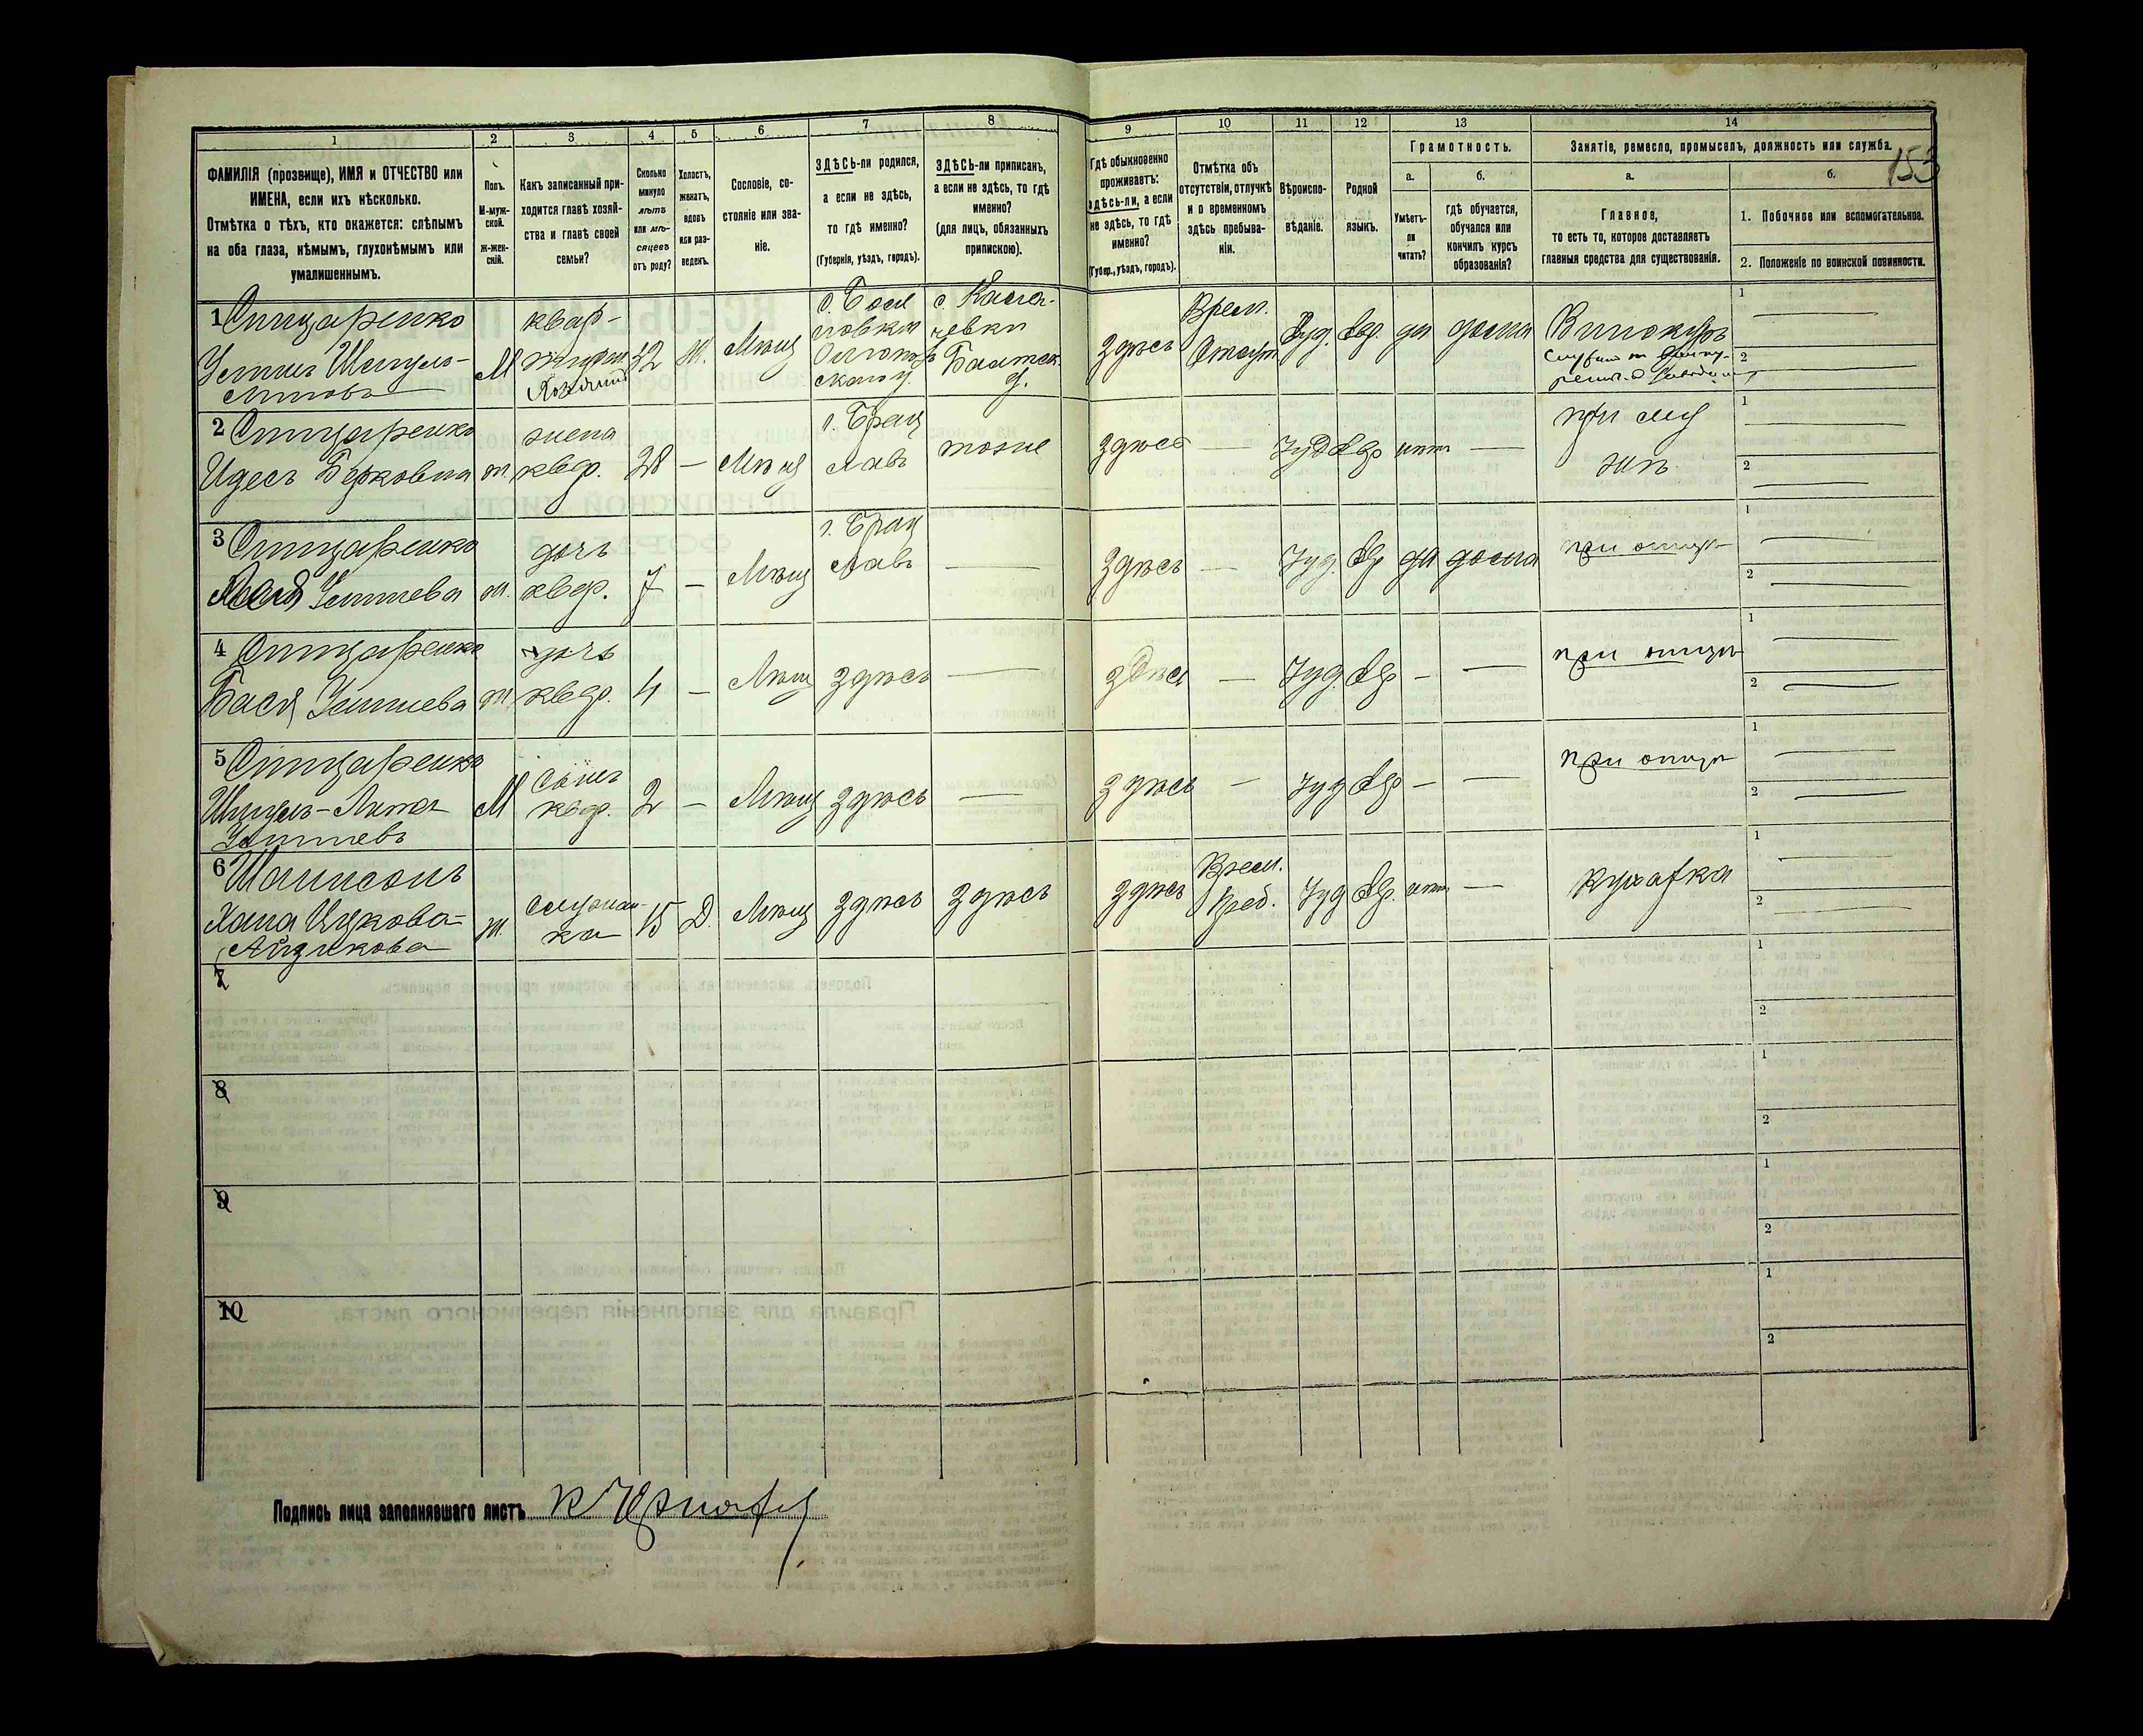 1 2 3 4 5 6 7 8 9 10 11 12 13 14
ФАМИЛІЯ (прозвище), ИМЯ и ОТЧЕСТВО или
ИМЕНА, если ихъ нѣсколько.
Отмѣтка о тѣхъ, кто окажется: слѣпымъ
на оба глаза, нѣмымъ, глухонѣмымъ или
умалишеннымъ.
Полъ.
М-муж-
ской.
ж-жен-
скій.
Какъ записанный при-
ходится главѣ хозяй-
ства и главѣ своей
семьи?
Сколько
минуло
лѣтъ
или мѣ-
сяцевъ
отъ роду?
Холостъ,
женатъ,
вдовъ
или раз-
веденъ.
Сословіе, со-
стояніе или зва-
ніе.
ЗДѢСЬ-ли родился,
а если не здѣсь,
то гдѣ именно?
(Губернія, уѣздъ, городъ).
ЗДѢСЬ-ли приписанъ,
а если не здѣсь, то гдѣ
именно?
(для лицъ, обязанныхъ
припискою).
Гдѣ обыкновенно
проживаетъ:
здѣсь-ли, а если
не здѣсь, то гдѣ
именно?
(Губер., уѣздъ, городъ).
Отмѣтка объ
отсутствіи, отлучкѣ
и о временномъ
здѣсь пребыва-
ніи.
Вѣроиспо-
вѣданіе.
Родной
языкъ.
Грамотность.
а.
Умѣетъ-
ли
читать?
б.
гдѣ обучается,
обучался или
кончилъ курсъ
образованія?
Занятіе, ремесло, промыселъ, должность или служба.
153
а.
Главное,
то есть то, которое доставляетъ
главныя средства для существованія.
б.
1. Побочное или вспомогательное.
2. Положеніе по воинской повинности.
1
М
квар-
32
Ж.
Мѣщ
здѣсь
Врем.
Отсут
Іуд. Евр. да дома
Винокуръ
1
2
2
Идесъ Берковна
ж.
жена
квар.
28
—
Мѣщ
г. Брац
лавъ
тоже
здѣсь
—
Іуд Евр нѣт
—
при муж
1
2
3
ж.
дочь
квар.
7
—
Мѣщ
г. Брац
лавъ
—
здѣсь
—
Іуд. Евр да дома
при отцѣ
1
2
4
Бася
ж.
дочь
квар.
4
—
Мѣщ
здѣсь
—
здѣсь
—
Іуд. Евр — —
при отцѣ
1
2
5
М
сынъ
квар.
2
—
Мѣщ
здѣсь
—
здѣсь
—
Іуд Евр — —
при отцѣ
1
2
6
Хана Ицкова-
Айзикова
ж.
служан-
ка
15
Д.
Мѣщ
здѣсь
здѣсь
здѣсь
Врем.
Преб.
Іуд Евр. нѣт —
кухарка
1
2
7
1
2
8
1
2
9
1
2
10
1
2
Подпись лица заполнявшаго листъ